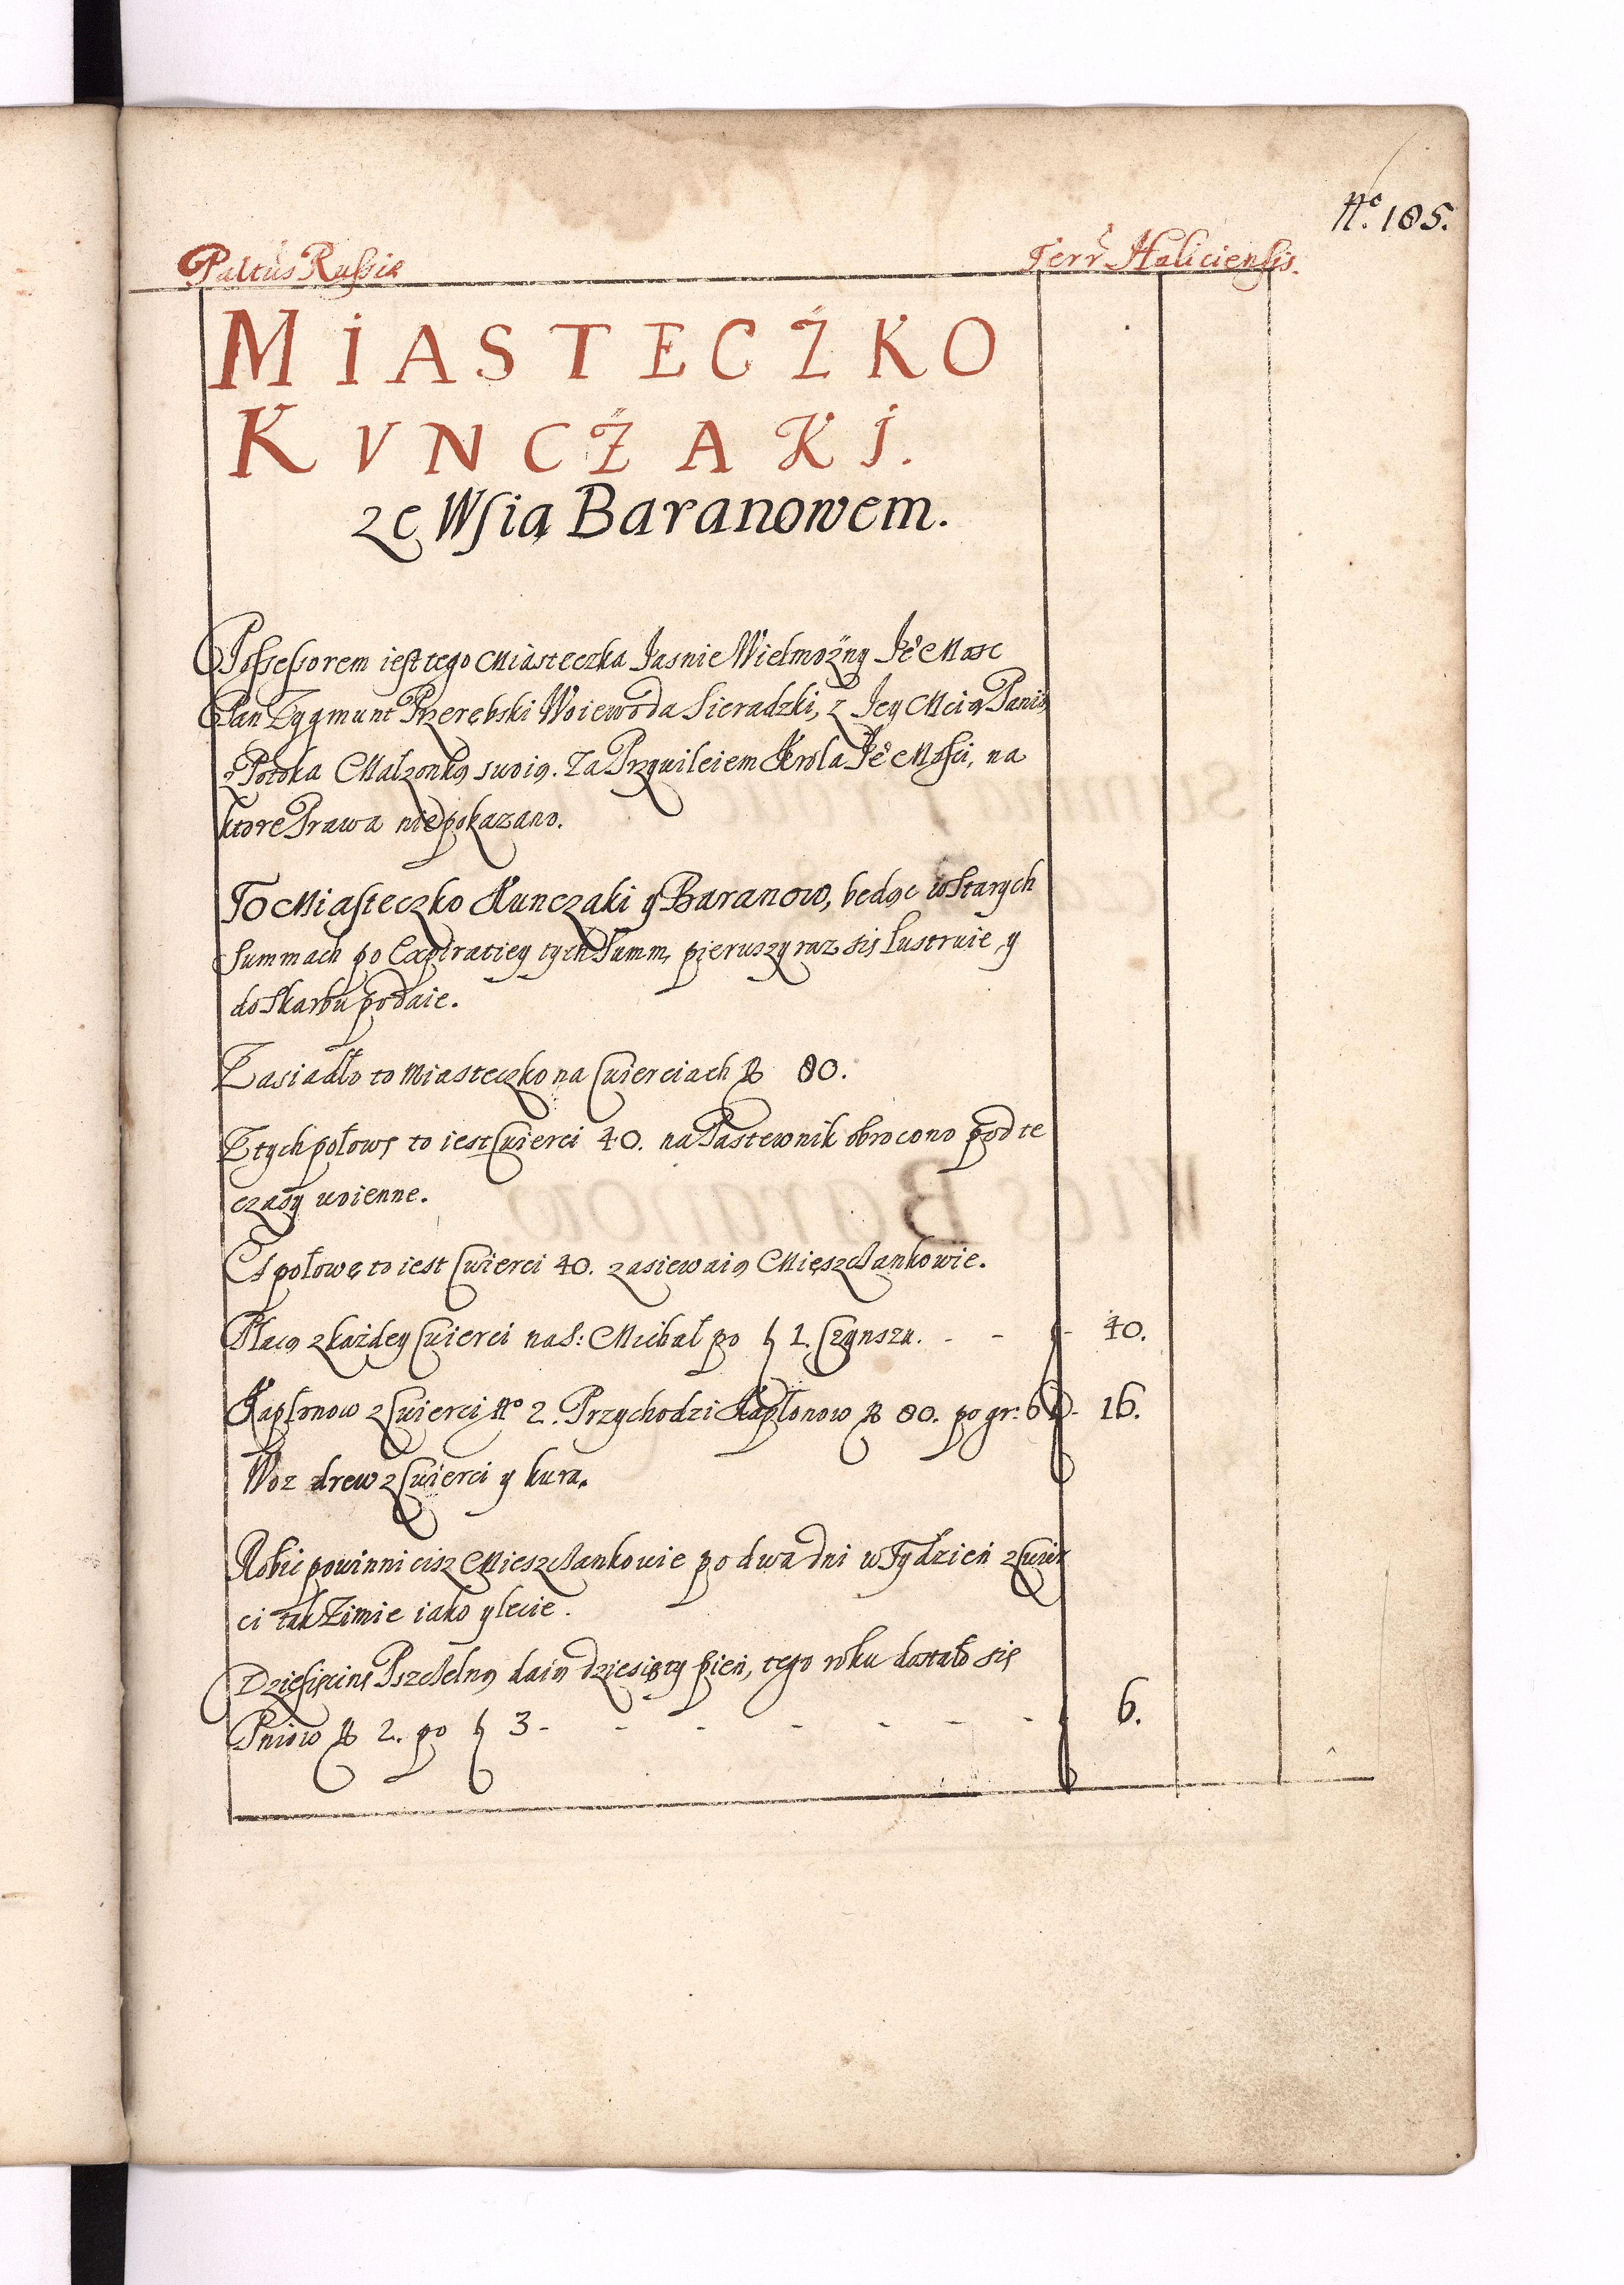 Nº. 185.
Palťus Russiæ Terř Haliciensis.
MIASTECŻKO
KVNCŻAKI.
ze Wsią Baranowem.
Possessorem iest tego Miasteczka Jasnie Wielmożny Je͛ Mosc
Pan Zygmunt Przerębski Woiewoda Sieradzki, z Jey Mcią Panią
z Potoka Małzonką swoią. Za Przywileiem Krola Je͛ Mości, na
ktore Prawa nie pokazano.
To Miasteczko Kunczaki y Baranow, będąc w Starych
Summach po Expiratiey tych Summ, pierwszy raz się Lustruie, y
do Skarbu podaie.
Zasiadło to Miasteczko na Cwierciach № 80.
Z tych połowę to iest Cwierci 40. na Pastewnik obrocono pod te
czasy woienne.
A połowę to iest Cwierci 40. zasiewaią Mięszczankowie.
Płacą z każdey Cwierci na S: Michał po ƒ 1. Czynszu. - - ƒ - 40.
Kapłonow z Cwierci Nº 2. Przychodzi Kapłonow № 80. po gr: 6 ƒ - 16.
Woz drew z Cwierci y kura.
Robic powinni cisz Mieszczankowie po dwa dni w Tydzień z Cwier
ci tak Zimie iako y lecie.
Dziesięcinę Pszczelną daią dziesiąty pień, tego roku dostało się
Pniow № 2. po ƒ 3 - - - - - - - ƒ 6.